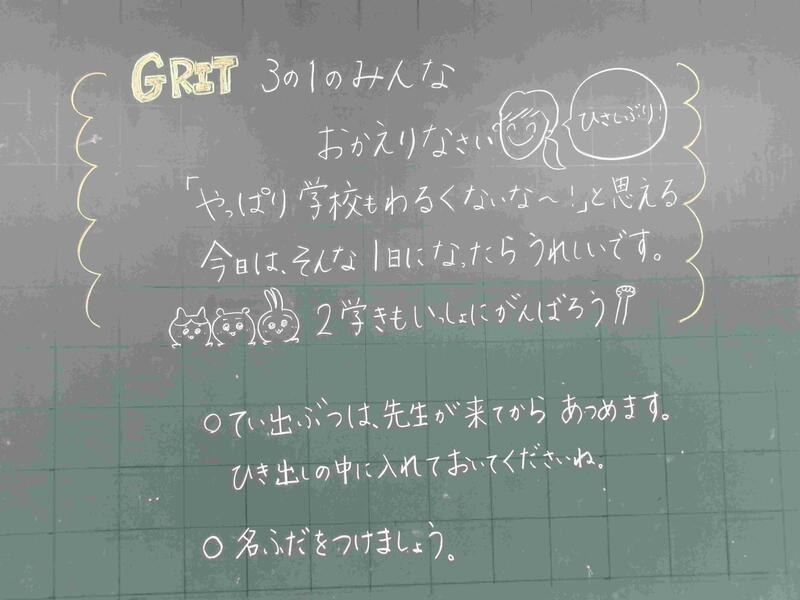 GRIT 3の1のみんな
おかえりなさい
ひさしぶり!
「やっぱり学校もわるくないな〜!」と思える
今日は、そんな1日になったらうれしいです。
2学きもいっしょにがんばろう
○てい出ぶつは、先生が来てから あつめます。
ひき出しの中に入れておいてくださいね。
○名ふだをつけましょう。